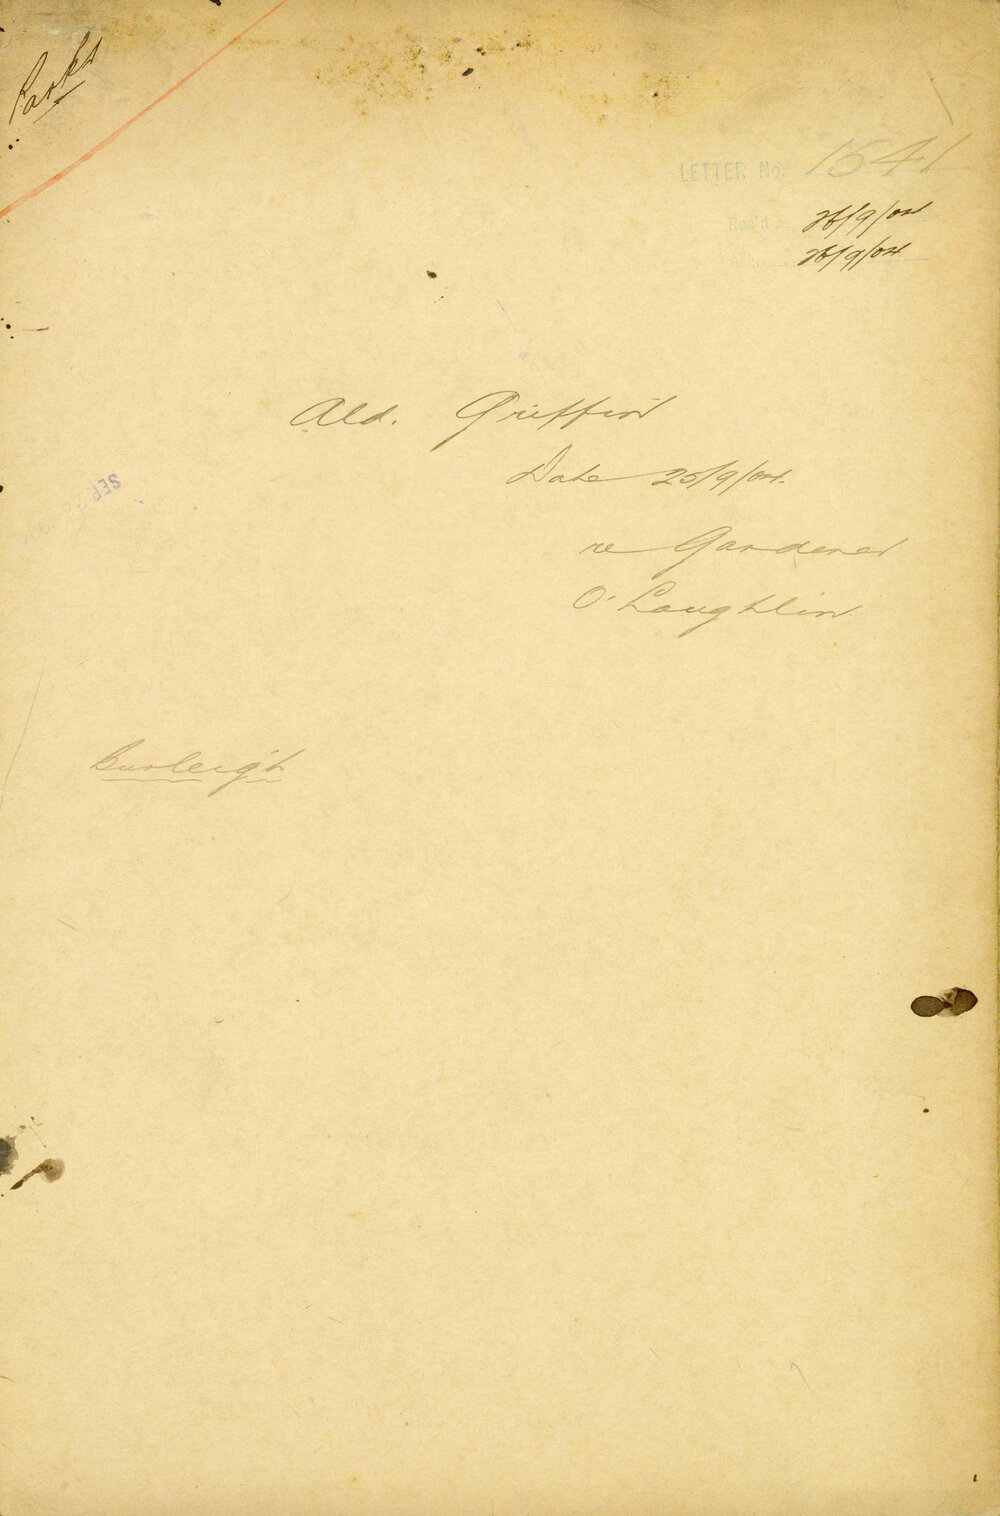 Parks
LETTER No. 1541
Rec'd 26/9/04
26/9/04
Ald. Griffin
Date 25/9/04.
SEP
re Gardener
O'Loughlin
Burleigh